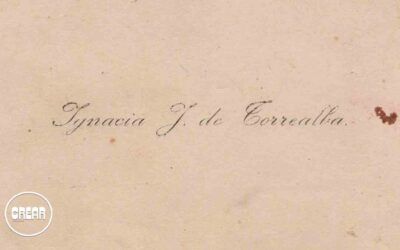 Ignacia J. de Torrealba.
CREAR